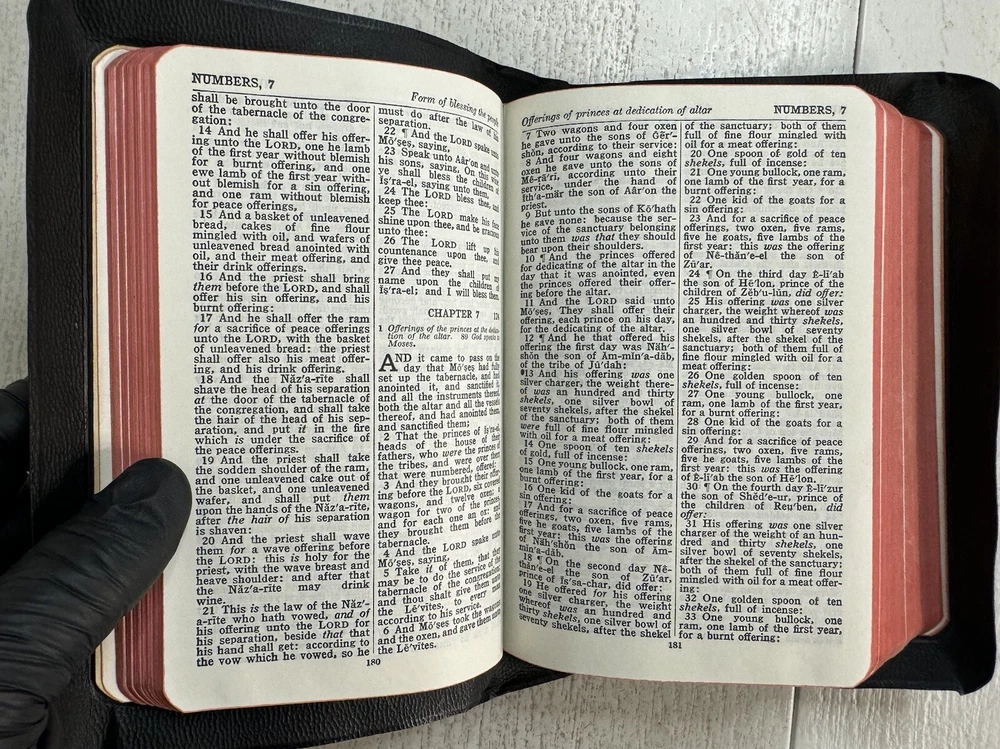 NUMBERS, 7
Form of blessing the people
shall be brought unto the door
of the tabernacle of the congre-
gation:
14 And he shall offer his offer-
ing unto the LORD, one he lamb
of the first year without blemish
for a burnt offering, and one
ewe lamb of the first year with-
out blemish for a sin offering,
and one ram without blemish
for peace offerings,
15 And a basket of unleavened
bread, cakes of fine flour
mingled with oil, and wafers of
unleavened bread anointed with
oil, and their meat offering, and
their drink offerings.
16 And the priest shall bring
them before the LORD, and shall
offer his sin offering, and his
burnt offering:
17 And he shall offer the ram
for a sacrifice of peace offerings
unto the LORD, with the basket
of unleavened bread: the priest
shall offer also his meat offer-
ing, and his drink offering.
18 And the Năz'a-rīte shall
shave the head of his separation
at the door of the tabernacle of
the congregation, and shall take
the hair of the head of his sep-
aration, and put it in the fire
which is under the sacrifice of
the peace offerings.
19 And the priest shall take
the sodden shoulder of the ram,
and one unleavened cake out of
the basket, and one unleavened
wafer, and shall put them
upon the hands of the Năz'a-rīte,
after the hair of his separation
is shaven:
20 And the priest shall wave
them for a wave offering before
the LORD: this is holy for the
priest, with the wave breast and
heave shoulder: and after that
the Năz'a-rīte may drink
wine.
21 This is the law of the Năz'-
a-rīte who hath vowed, and of
his offering unto the LORD for
his separation, beside that that
his hand shall get: according to
the vow which he vowed, so he
must do after the law of his
separation.
22 ¶ And the LORD spake unto
Mō'ṣeṣ, saying,
23 Speak unto Aâr'on and unto
his sons, saying, On this wise
ye shall bless the children of
Ĭṣ'ra-el, saying unto them,
24 The LORD bless thee, and
keep thee:
25 The LORD make his face
shine upon thee, and be gracious
unto thee:
26 The LORD lift up his
countenance upon thee, and
give thee peace.
27 And they shall put my
name upon the children of
Ĭṣ'ra-el; and I will bless them.
CHAPTER 7
1 Offerings of the princes at the dedica-
tion of the altar. 89 God speaks to
Moses.
AND it came to pass on the
day that Mō'ṣeṣ had fully
set up the tabernacle, and had
anointed it, and sanctified it,
and all the instruments thereof,
both the altar and all the vessels
thereof, and had anointed them,
and sanctified them;
2 That the princes of Ĭṣ'ra-el,
heads of the house of their
fathers, who were the princes of
the tribes, and were over them
that were numbered, offered:
3 And they brought their offer-
ing before the LORD, six covered
wagons, and twelve oxen; a
wagon for two of the princes,
and for each one an ox: and
they brought them before the
tabernacle.
4 And the LORD spake unto
Mō'ṣeṣ, saying,
5 Take it of them, that they
may be to do the service of the
tabernacle of the congregation;
and thou shalt give them unto
the Lē'vītes, to every man
according to his service.
6 And Mō'ṣeṣ took the wagons
and the oxen, and gave them unto
the Lē'vītes.
180
Offerings of princes at dedication of altar
NUMBERS, 7
7 Two wagons and four oxen
he gave unto the sons of Gẽr'-
shŏn, according to their service:
8 And four wagons and eight
oxen he gave unto the sons of
Mē-rā'rī, according unto their
service, under the hand of
Ĭth'a-mär the son of Aâr'on the
priest.
9 But unto the sons of Kō'hath
he gave none: because the ser-
vice of the sanctuary belonging
unto them was that they should
bear upon their shoulders.
10 ¶ And the princes offered
for dedicating of the altar in the
day that it was anointed, even
the princes offered their offer-
ing before the altar.
11 And the LORD said unto
Mō'ṣeṣ, They shall offer their
offering, each prince on his day,
for the dedicating of the altar.
12 ¶ And he that offered his
offering the first day was Näh'-
shŏn the son of Ăm-mĭn'a-dăb,
of the tribe of Jū'dah:
13 And his offering was one
silver charger, the weight there-
of was an hundred and thirty
shekels, one silver bowl of
seventy shekels, after the shekel
of the sanctuary; both of them
were full of fine flour mingled
with oil for a meat offering:
14 One spoon of ten shekels
of gold, full of incense:
15 One young bullock, one ram,
one lamb of the first year, for a
burnt offering:
16 One kid of the goats for a
sin offering:
17 And for a sacrifice of peace
offerings, two oxen, five rams,
five he goats, five lambs of the
first year: this was the offering
of Näh'shŏn the son of Ăm-
mĭn'a-dăb.
18 ¶ On the second day Nē-
thăn'e-el the son of Zū'ar,
prince of Ĭs'sa-char, did offer:
19 He offered for his offering
one silver charger, the weight
whereof was an hundred and
thirty shekels, one silver bowl of
seventy shekels, after the shekel
of the sanctuary; both of them
full of fine flour mingled with
oil for a meat offering:
20 One spoon of gold of ten
shekels, full of incense:
21 One young bullock, one ram,
one lamb of the first year, for a
burnt offering:
22 One kid of the goats for a
sin offering:
23 And for a sacrifice of peace
offerings, two oxen, five rams,
five he goats, five lambs of the
first year: this was the offering
of Nē-thăn'e-el the son of
Zū'ar.
24 ¶ On the third day Ē-lī'ab
the son of Hē'lon, prince of the
children of Zĕb'u-lŭn, did offer:
25 His offering was one silver
charger, the weight whereof was
an hundred and thirty shekels,
one silver bowl of seventy
shekels, after the shekel of the
sanctuary; both of them full of
fine flour mingled with oil for a
meat offering:
26 One golden spoon of ten
shekels, full of incense:
27 One young bullock, one
ram, one lamb of the first year,
for a burnt offering:
28 One kid of the goats for a
sin offering:
29 And for a sacrifice of peace
offerings, two oxen, five rams,
five he goats, five lambs of the
first year: this was the offering
of Ē-lī'ab the son of Hē'lon.
30 ¶ On the fourth day Ē-lī'zur
the son of Shĕd'e-ur, prince of
the children of Reu'ben, did
offer:
31 His offering was one silver
charger of the weight of an hun-
dred and thirty shekels, one
silver bowl of seventy shekels,
after the shekel of the sanctuary;
both of them full of fine flour
mingled with oil for a meat offer-
ing:
32 One golden spoon of ten
shekels, full of incense:
33 One young bullock, one
ram, one lamb of the first year,
for a burnt offering:
181